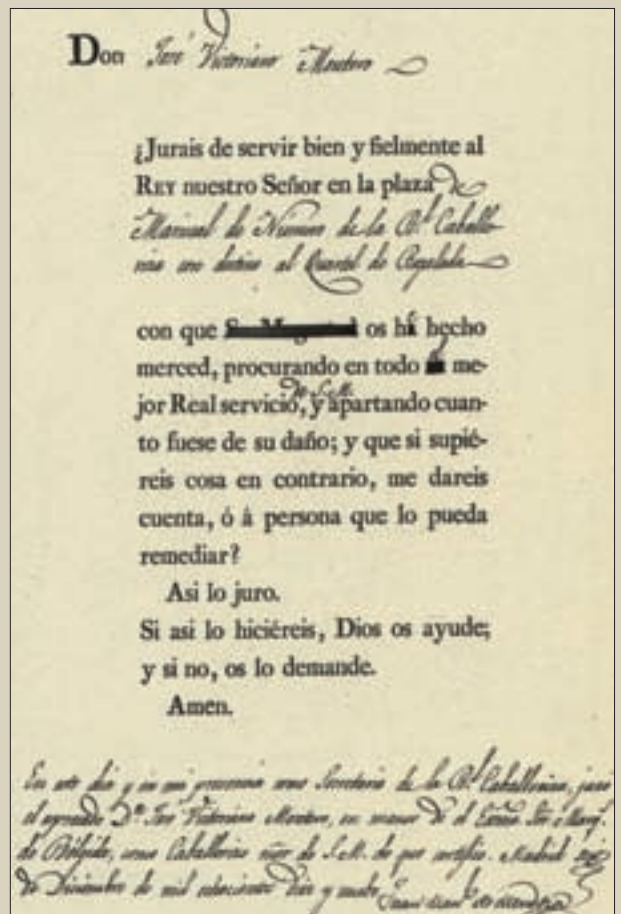 Don José Victoriano Montero
¿Jurais de servir bien y fielmente al
REY nuestro Señor en la plaza de
Mariscal de Numero de la Rl. Caballe-
riza con destino al Quartel de Regalada
con que os há hecho
merced, procurando en todo el me-
jor Real servicio, de S. M. y apartando cuan-
to fuese de su daño; y que si supié-
reis cosa en contrario, me dareis
cuenta, ó à persona que lo pueda
remediar?
Asi lo juro.
Si asi lo hiciéreis, Dios os ayude;
y si no, os lo demande.
Amen.
En este dia y en mi presencia como Secretario de la Rl. Caballeriza, juró
el agraciado Dn. José Victoriano Montero, en manos de el Excmo. Sor. Marqs.
de Bélgida, como Caballerizo mor. de S.M. de que certifico. Madrid
de Diciembre de mil ochocientos diez y nueve. Juan